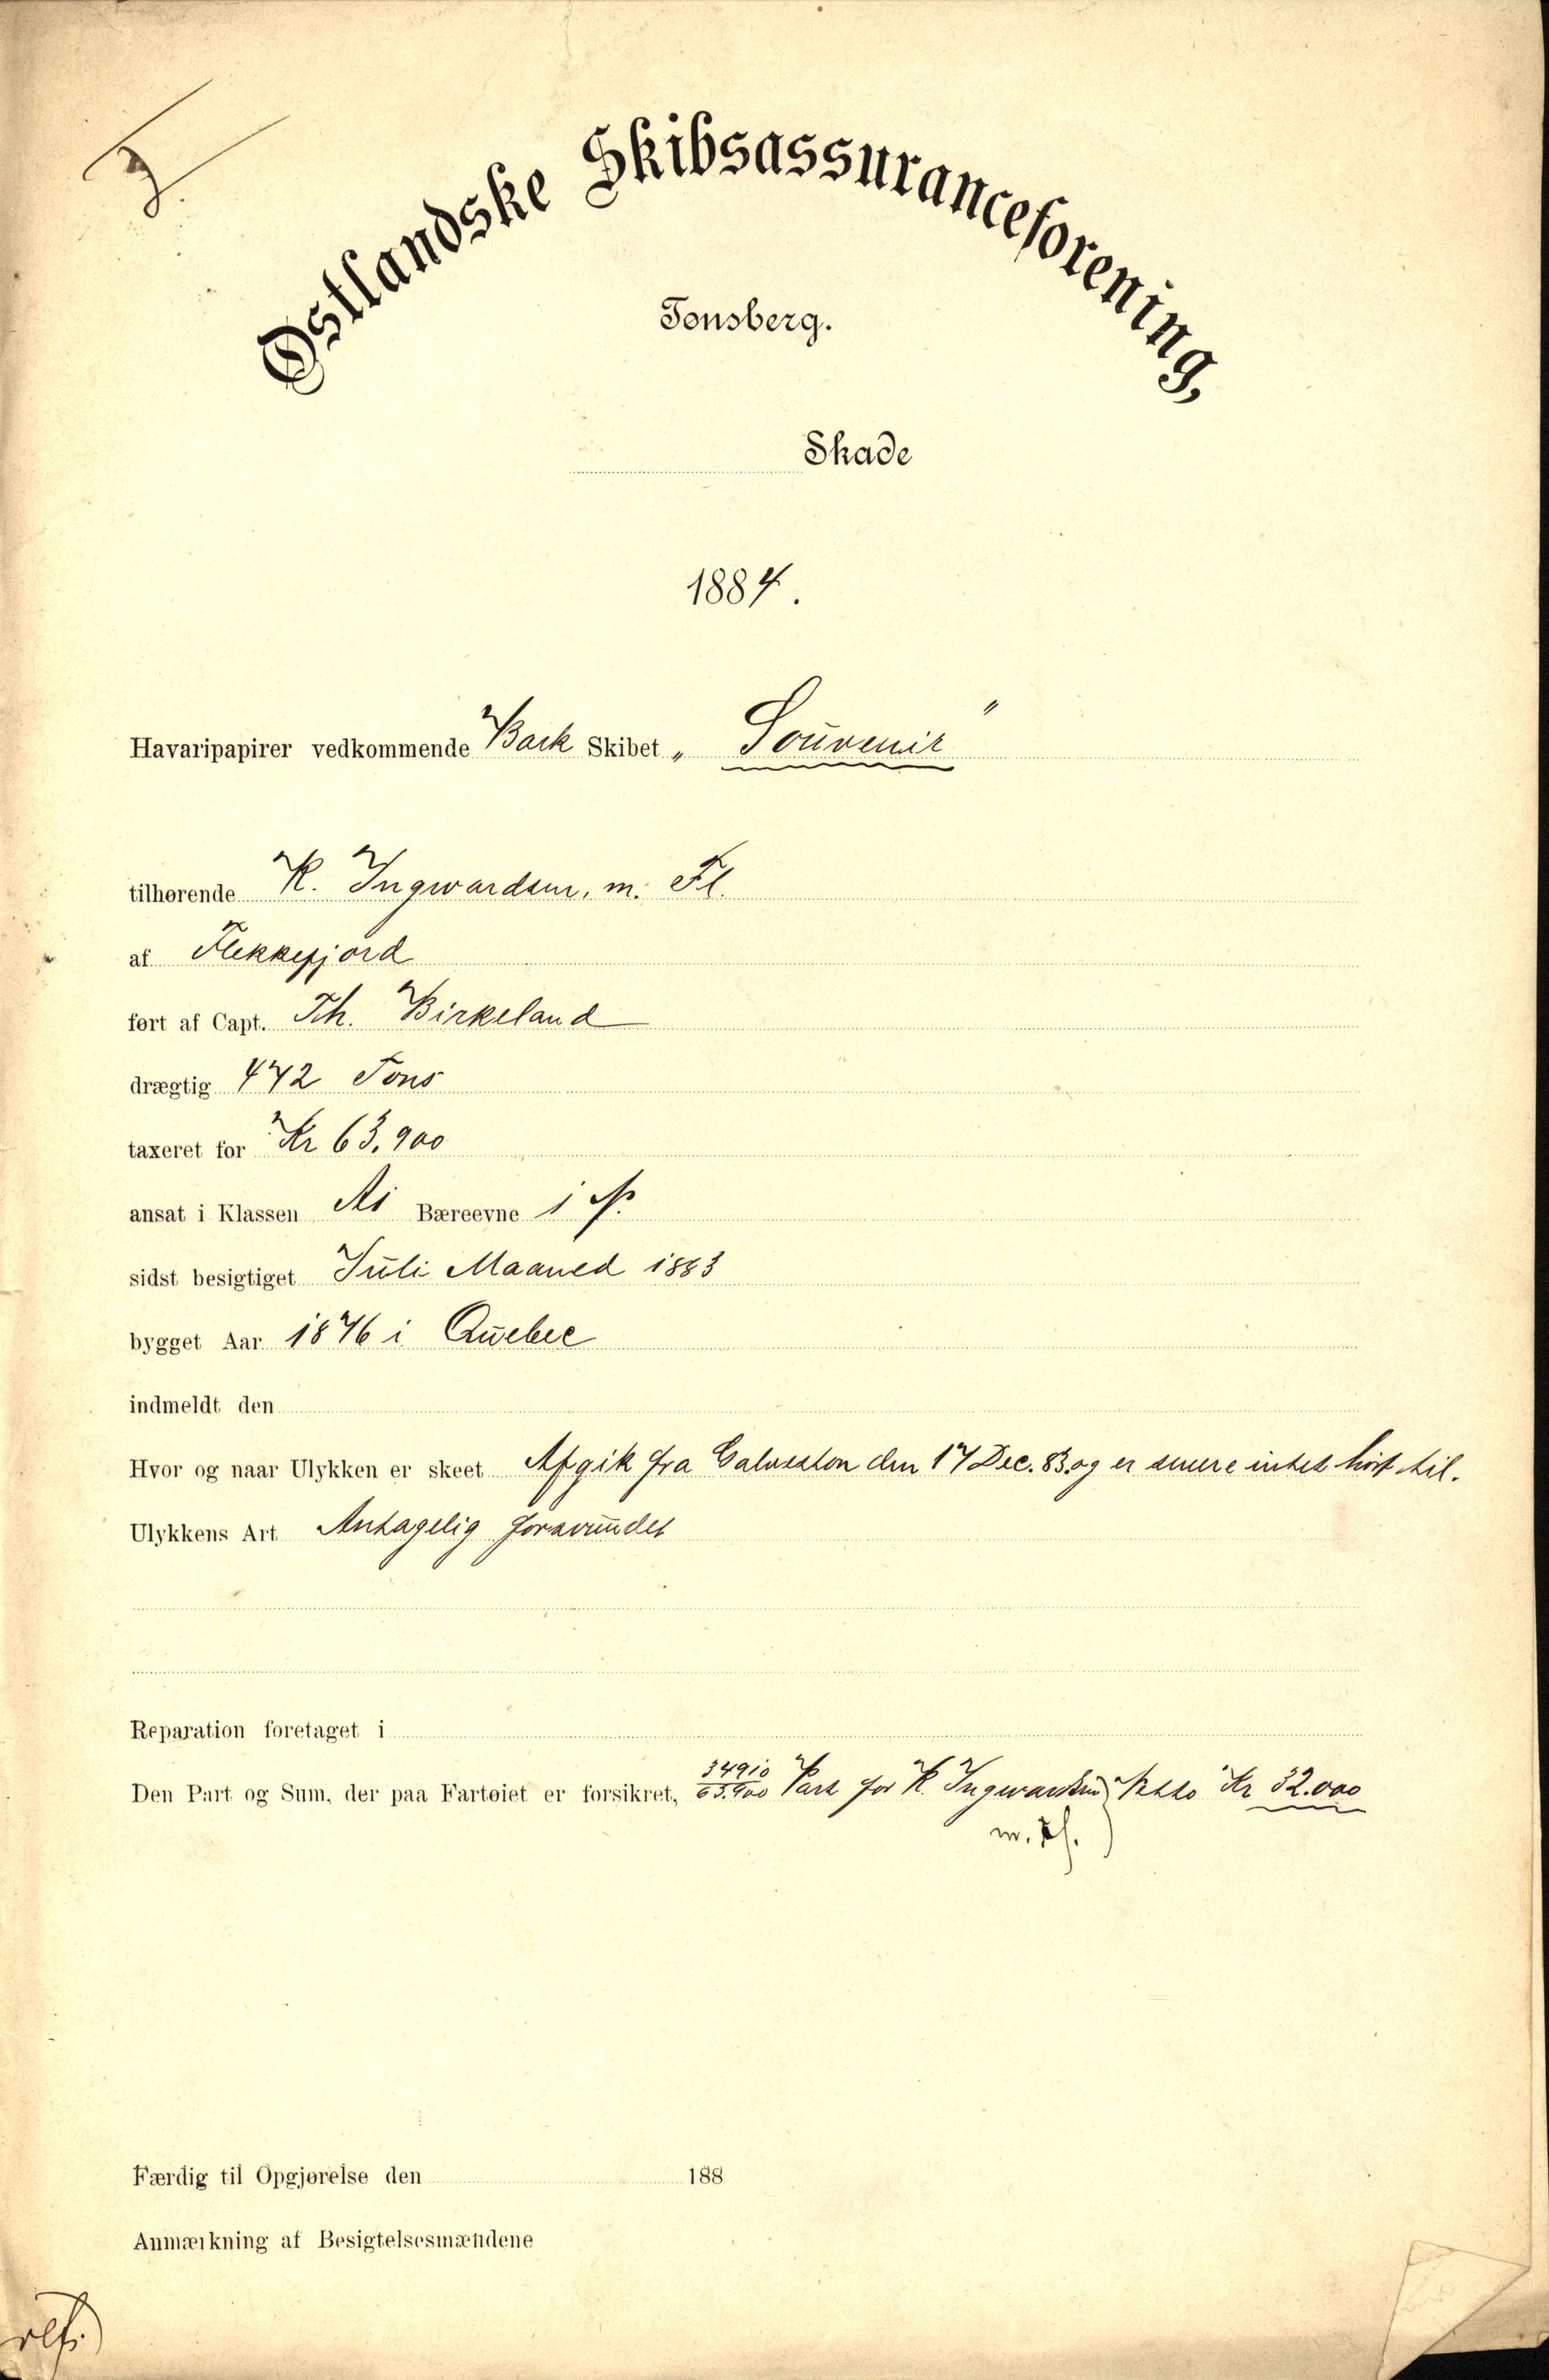 Østlandske Skibsassuranceforening,
Tønsberg.
Skade
1884.
Havaripapirer vedkommende Bark Skibet „Souvenir"
tilhørende K. Ingwardsen, m. Fl.
af Flekkefjord
ført af Capt. Th. Birkeland
drægtig 472 Tons
taxeret for Kr 63.900
ansat i Klassen A1 Bæreevne 1
sidst besigtiget Juli Maaned 1883
bygget Aar 1876 i Quebec
indmeldt den
Hvor og naar Ulykken er skeet Afgik fra Galveston den 17 Dec. 83. og er senere intet hørt til.
Ulykkens Art Antagelig forsvundet
Reparation foretaget i
Den Part og Sum, der paa Fartøiet er forsikret, 34910/63.900 Part for K. Ingwardsen Kr 32.000
m. Fl.
Færdig til Opgjørelse den 188
Anmærkning af Besigtelsesmændene